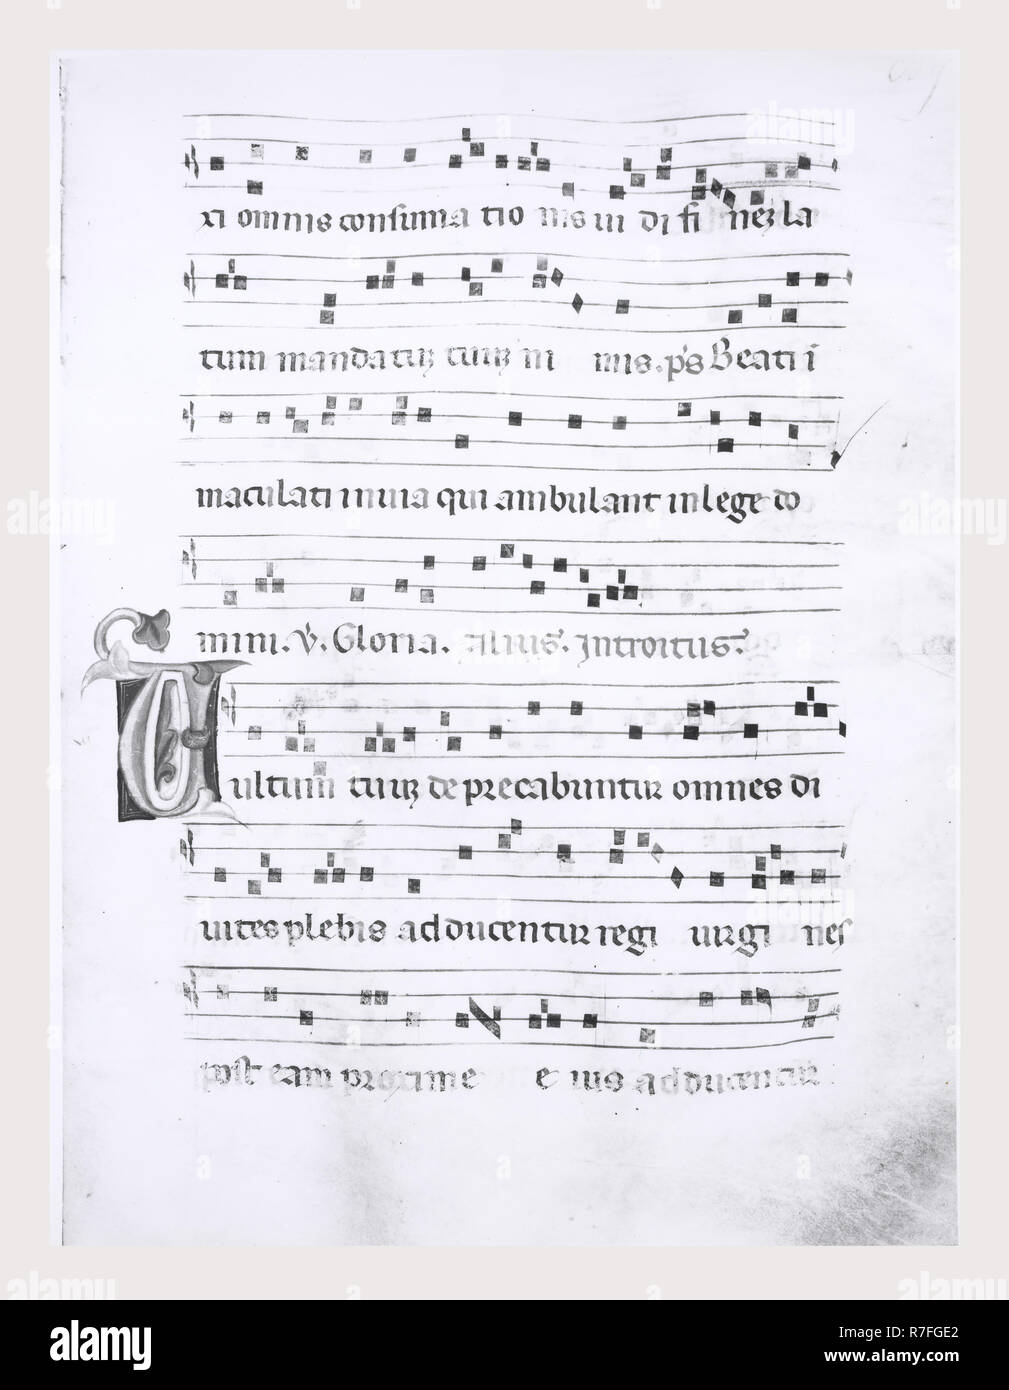 xi omnis consuma tio nis ui di fi nez la
tum mandatuꝝ tuuꝝ ni mis. ps Beati i
maculati in uia qui ambulant in lege do
mini. V. Gloria. alius. Introitus.
Vultum tuuꝝ deprecabuntur omnes di
uites plebis adducentur regi uirgi nes
post eam proxime e ius adducentur
alamy
Image ID: R7FGE2
www.alamy.com